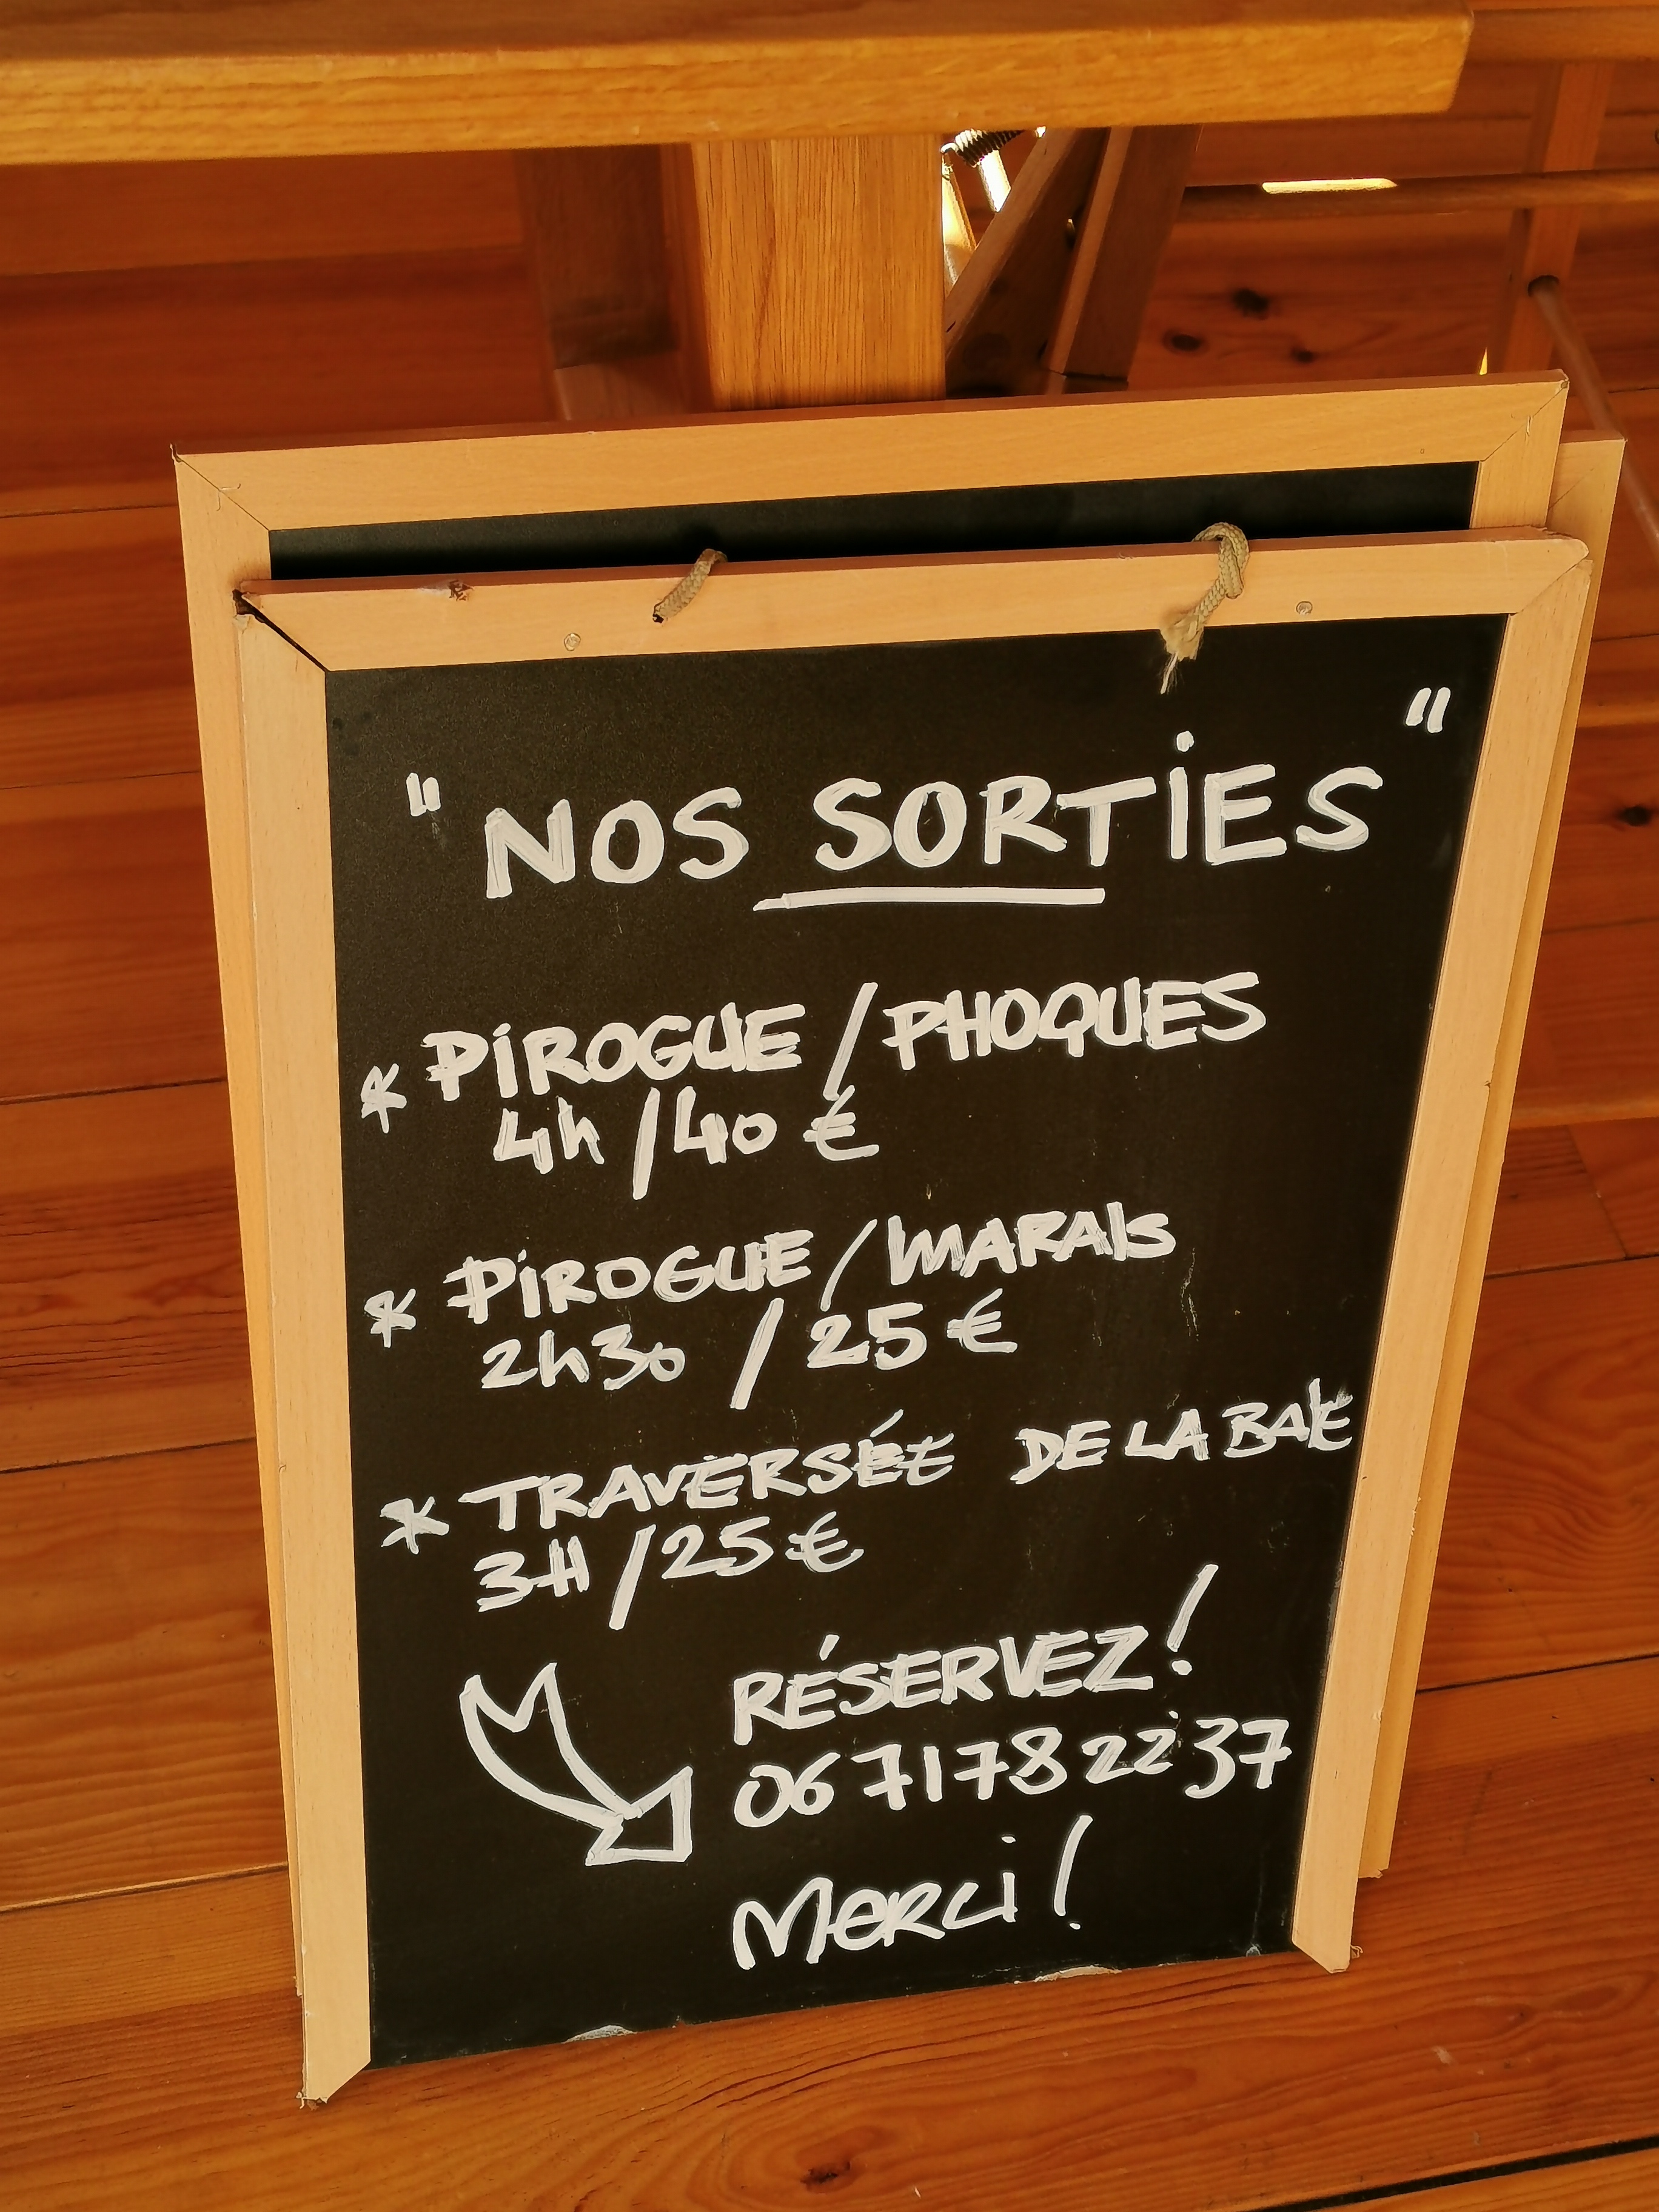 " NOS SORTIES "
* PIROGUE / PHOQUES
4h / 40 €
* PIROGUE / MARAIS
2h30 / 25 €
* TRAVERSÉE DE LA BAIE
3H / 25 €
RÉSERVEZ !
06 71 78 22 37
Merci !